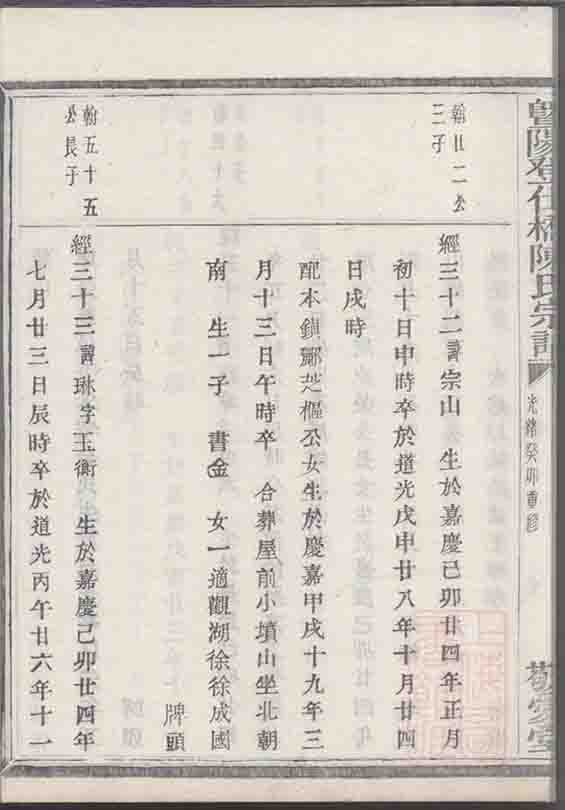 暨陽登仕橋陳氏宗譜
光緒癸卯重修
敬愛堂
翰廿二公
三子
經三十二諱宗山 生於嘉慶己卯廿四年正月
初十日申時卒於道光戊申廿八年十月廿四
日戌時
配本鎮酈芝樞公女生於慶嘉甲戌十九年三
月十三日午時卒 合葬屋前小墳山坐北朝
南 生一子 書金 女一適觀湖徐徐成國
牌頭
翰五十五
公長子
經三十三諱珠字玉衡 生於嘉慶己卯廿四年
七月廿三日辰時卒於道光丙午廿六年十一